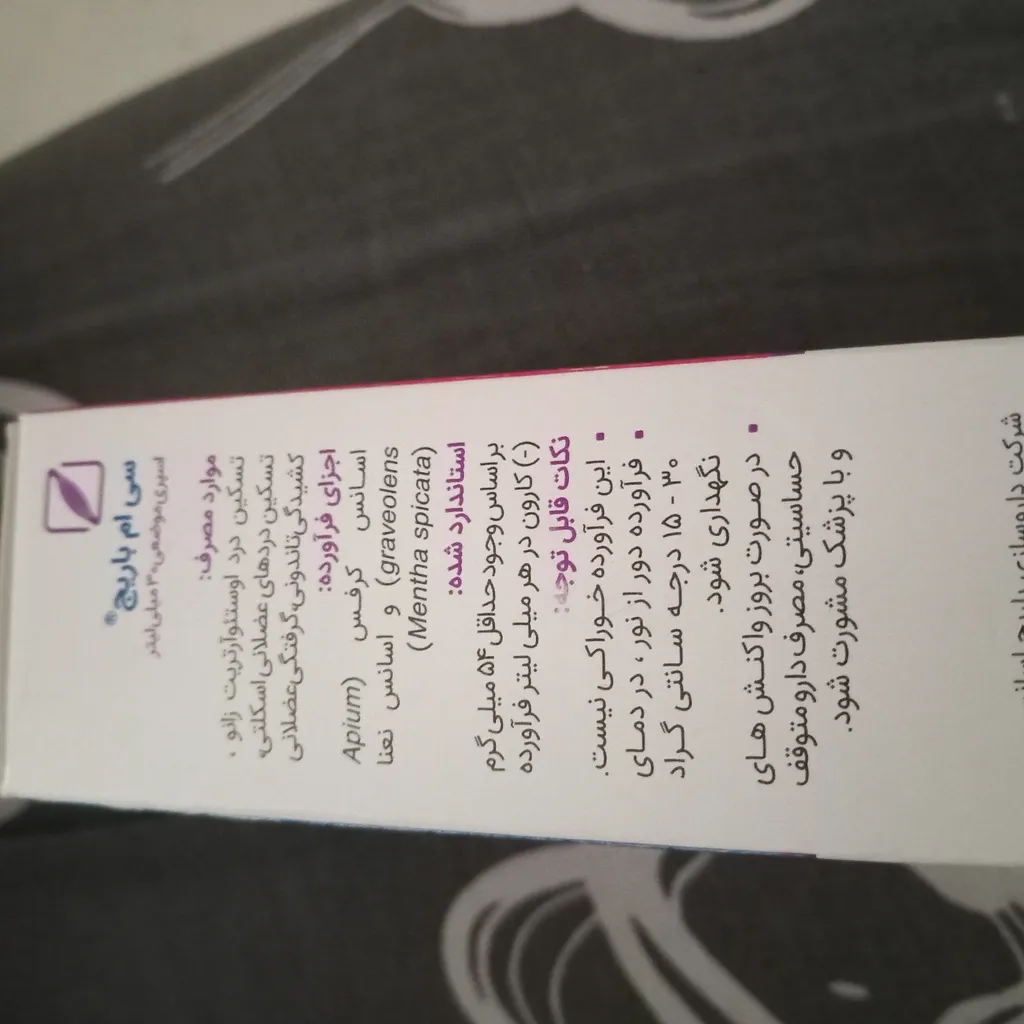 سی ام باریج®
اسپری موضعی ۳۰ میلی لیتر
موارد مصرف:
تسکین درد اوستئوآرتریت زانو ،
تسکین دردهای عضلانی اسکلتی،
کشیدگی تاندونی، گرفتگی عضلانی
اجزای فرآورده:
اسانس کرفس (Apium
graveolens) و اسانس نعنا
(Mentha spicata)
استاندارد شده:
براساس وجود حداقل ۵۴ میلی گرم
(-) کارون در هر میلی لیتر فرآورده
نکات قابل توجه:
▪ این فرآورده خوراکی نیست.
▪ فرآورده دور از نور ، در دمای
۳۰ - ۱۵ درجه سانتی گراد
نگهداری شود.
▪ در صورت بروز واکنش های
حساسیتی، مصرف دارو متوقف
و با پزشک مشورت شود.
شرکت داروسازی باریج اسانس